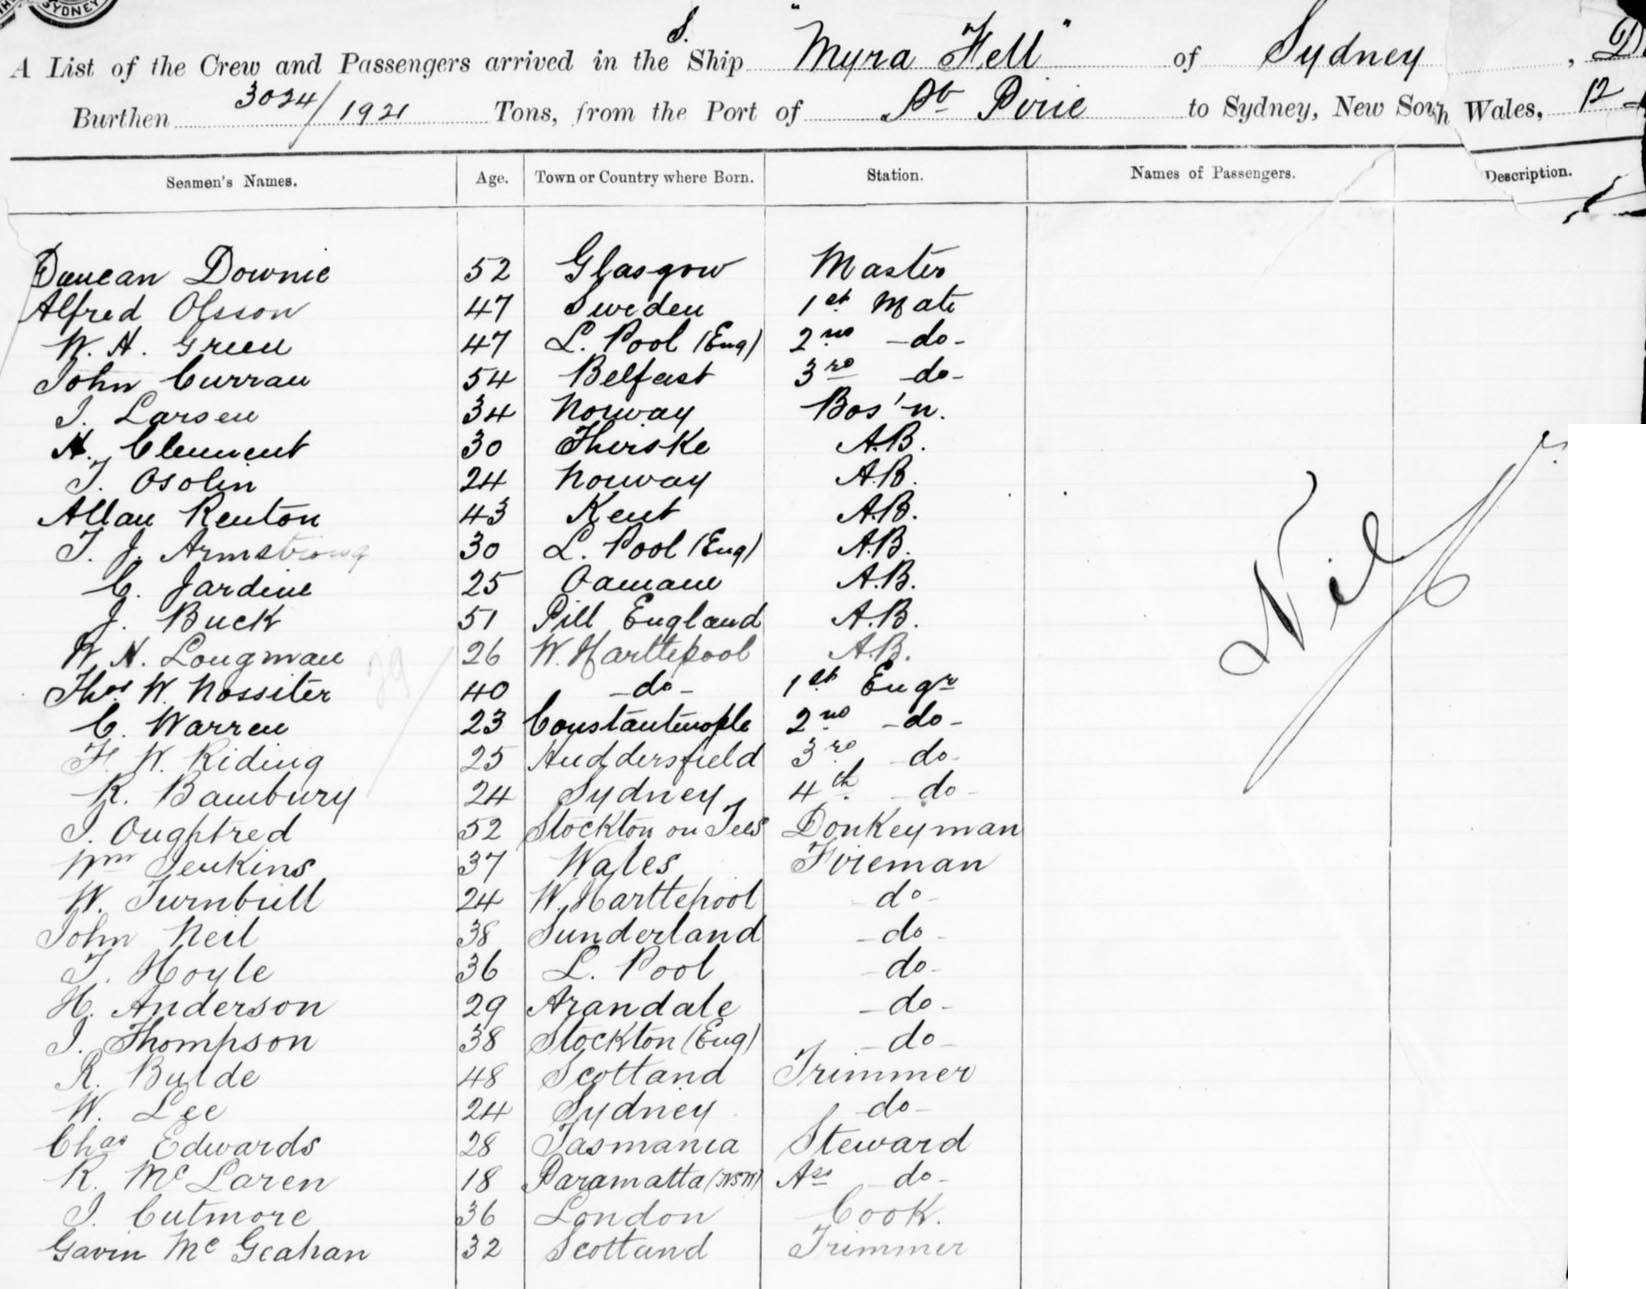 SYDNEY
A List of the Crew and Passengers arrived in the S. Ship "Myra Fell" of Sydney, D
Burthen 3024/1921 Tons, from the Port of Pt Pirie to Sydney, New South Wales, 12
Seamen's Names. Age. Town or Country where Born. Station. Names of Passengers. Description.
Duncan Downie 52 Glasgow Master
Alfred Olsson 47 Sweden 1st Mate
W. H. Green 47 L. Pool (Eng) 2nd -do-
John Curran 54 Belfast 3rd -do-
I. Larsen 34 Norway Bos'n.
H. Clement 30 Thirske A.B.
T. Osolin 24 Norway A.B.
Allan Renton 43 Kent A.B.
T. J. Armstrong 30 L. Pool (Eng) A.B.
C. Jardine 25 Oamaru A.B.
J. Buck 51 Pill England A.B.
W. H. Longman 26 W. Hartlepool A.B.
Thos W. Nossiter 40 -do- 1st Engr
C. Warren 23 Constantinople 2nd -do-
F. W. Riding 25 Huddersfield 3rd do-
R. Bambury 24 Sydney 4th do-
J. Oughtred 52 Stockton on Tees Donkeyman
Wm Jenkins 37 Wales Fireman
W. Turnbull 24 W. Hartlepool do-
John Neil 38 Sunderland -do-
T. Hoyle 36 L. Pool -do-
H. Anderson 29 Arandale -do-
J. Thompson 38 Stockton (Eng) -do-
R. Bulde 48 Scotland Trimmer
W. Lee 24 Sydney -do-
Chas Edwards 28 Tasmania Steward
R. McLaren 18 Paramatta (NSW) Ass do-
J. Cutmore 36 London Cook.
Gavin McGeahan 32 Scotland Trimmer
Nil